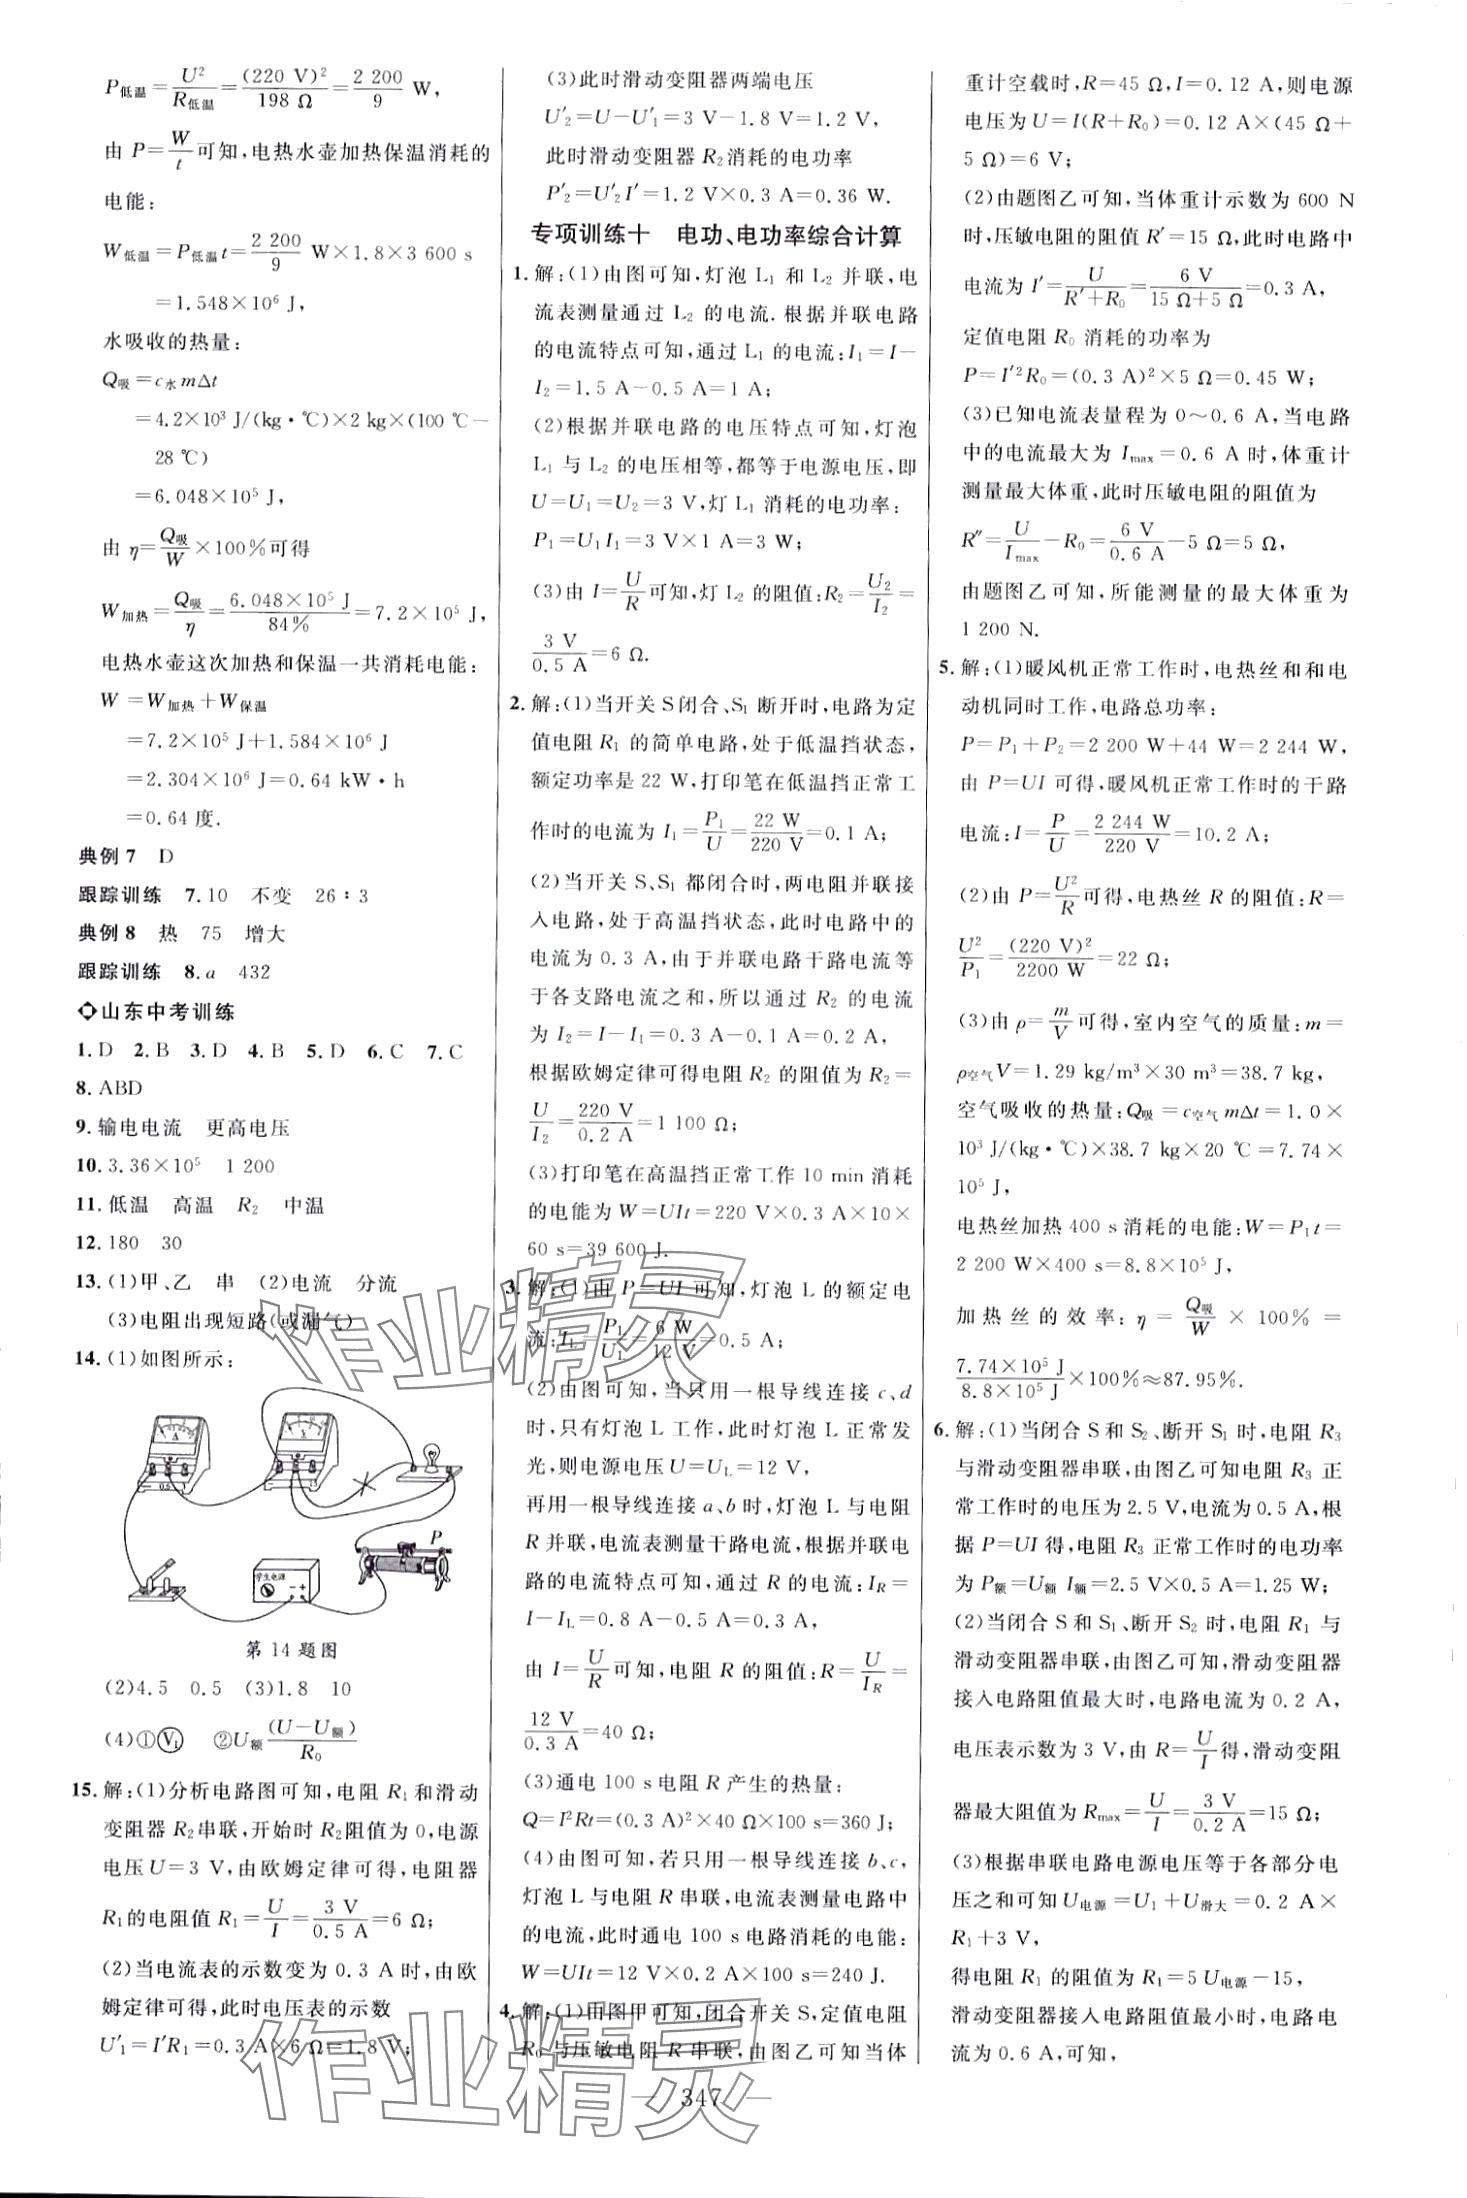 P低温=U²/R低温=(220 V)²/198 Ω=2 200/9 W,
由 P=W/t 可知,电热水壶加热保温消耗的
电能:
W低温=P低温t=2 200/9 W×1.8×3 600 s
=1.548×10⁶ J,
水吸收的热量:
Q吸=c水mΔt
=4.2×10³ J/(kg·℃)×2 kg×(100 ℃-
28 ℃)
=6.048×10⁵ J,
由 η=Q吸/W×100%可得
W加热=Q吸/η=6.048×10⁵ J/84%=7.2×10⁵ J,
电热水壶这次加热和保温一共消耗电能:
W =W加热+W保温
=7.2×10⁵ J+1.584×10⁶ J
=2.304×10⁶ J=0.64 kW·h
=0.64 度.
典例 7 D
跟踪训练 7.10 不变 26∶3
典例 8 热 75 增大
跟踪训练 8.a 432
山东中考训练
1.D 2.B 3.D 4.B 5.D 6.C 7.C
8.ABD
9.输电电流 更高电压
10.3.36×10⁵ 1 200
11.低温 高温 R₂ 中温
12.180 30
13.(1)甲、乙 串 (2)电流 分流
(3)电阻出现短路(或漏气)
14.(1)如图所示:
A
V
0.5
P
学生电源
第 14 题图
(2)4.5 0.5 (3)1.8 10
(4)①V₁ ②U额(U-U额)/R₀
15.解:(1)分析电路图可知,电阻 R₁和滑动
变阻器 R₂串联,开始时 R₂阻值为 0,电源
电压 U=3 V,由欧姆定律可得,电阻器
R₁的电阻值 R₁=U/I=3 V/0.5 A=6 Ω;
(2)当电流表的示数变为 0.3 A 时,由欧
姆定律可得,此时电压表的示数
U′₁=I′R₁=0.3 A×6 Ω=1.8 V;
(3)此时滑动变阻器两端电压
U′₂=U-U′₁=3 V-1.8 V=1.2 V,
此时滑动变阻器 R₂消耗的电功率
P′₂=U′₂I′=1.2 V×0.3 A=0.36 W.
专项训练十 电功、电功率综合计算
1.解:(1)由图可知,灯泡 L₁ 和 L₂ 并联,电
流表测量通过 L₂ 的电流.根据并联电路
的电流特点可知,通过 L₁ 的电流:I₁=I-
I₂=1.5 A-0.5 A=1 A;
(2)根据并联电路的电压特点可知,灯泡
L₁ 与 L₂ 的电压相等,都等于电源电压,即
U=U₁=U₂=3 V,灯 L₁ 消耗的电功率:
P₁=U₁I₁=3 V×1 A=3 W;
(3)由 I=U/R 可知,灯 L₂ 的阻值:R₂=U₂/I₂=
3 V/0.5 A=6 Ω.
2.解:(1)当开关 S 闭合、S₁ 断开时,电路为定
值电阻 R₁ 的简单电路,处于低温挡状态,
额定功率是 22 W,打印笔在低温挡正常工
作时的电流为 I₁=P₁/U=22 W/220 V=0.1 A;
(2)当开关 S、S₁ 都闭合时,两电阻并联接
入电路,处于高温挡状态,此时电路中的
电流为 0.3 A,由于并联电路干路电流等
于各支路电流之和,所以通过 R₂ 的电流
为 I₂=I-I₁=0.3 A-0.1 A=0.2 A,
根据欧姆定律可得电阻 R₂ 的阻值为 R₂=
U/I₂=220 V/0.2 A=1 100 Ω;
(3)打印笔在高温挡正常工作 10 min 消耗
的电能为 W=UIt=220 V×0.3 A×10×
60 s=39 600 J.
3.解:(1)由 P=UI 可知,灯泡 L 的额定电
流:I_L=P₁/U₁=6 W/12 V=0.5 A;
(2)由图可知,当只用一根导线连接 c、d
时,只有灯泡 L 工作,此时灯泡 L 正常发
光,则电源电压 U=U_L=12 V,
再用一根导线连接 a、b 时,灯泡 L 与电阻
R 并联,电流表测量干路电流,根据并联电
路的电流特点可知,通过 R 的电流:I_R=
I-I_L=0.8 A-0.5 A=0.3 A,
由 I=U/R 可知,电阻 R 的阻值:R=U/I_R=
12 V/0.3 A=40 Ω;
(3)通电 100 s 电阻 R 产生的热量:
Q=I²Rt=(0.3 A)²×40 Ω×100 s=360 J;
(4)由图可知,若只用一根导线连接 b、c,
灯泡 L 与电阻 R 串联,电流表测量电路中
的电流,此时通电 100 s 电路消耗的电能:
W=UIt=12 V×0.2 A×100 s=240 J.
4.解:(1)由图甲可知,闭合开关 S,定值电阻
R₀ 与压敏电阻 R 串联,由图乙可知当体
重计空载时,R=45 Ω,I=0.12 A,则电源
电压为 U=I(R+R₀)=0.12 A×(45 Ω+
5 Ω)=6 V;
(2)由题图乙可知,当体重计示数为 600 N
时,压敏电阻的阻值 R′=15 Ω,此时电路中
电流为 I′=U/(R′+R₀)=6 V/(15 Ω+5 Ω)=0.3 A,
定值电阻 R₀ 消耗的功率为
P=I′²R₀=(0.3 A)²×5 Ω=0.45 W;
(3)已知电流表量程为 0～0.6 A,当电路
中的电流最大为 Imax=0.6 A 时,体重计
测量最大体重,此时压敏电阻的阻值为
R″=U/Imax-R₀=6 V/0.6 A-5 Ω=5 Ω,
由题图乙可知,所能测量的最大体重为
1 200 N.
5.解:(1)暖风机正常工作时,电热丝和和电
动机同时工作,电路总功率:
P=P₁+P₂=2 200 W+44 W=2 244 W,
由 P=UI 可得,暖风机正常工作时的干路
电流:I=P/U=2 244 W/220 V=10.2 A;
(2)由 P=U²/R 可得,电热丝 R 的阻值:R=
U²/P₁=(220 V)²/2200 W=22 Ω;
(3)由 ρ=m/V 可得,室内空气的质量:m=
ρ空气V=1.29 kg/m³×30 m³=38.7 kg,
空气吸收的热量:Q吸=c空气mΔt=1.0×
10³ J/(kg·℃)×38.7 kg×20 ℃=7.74×
10⁵ J,
电热丝加热 400 s 消耗的电能:W=P₁t=
2 200 W×400 s=8.8×10⁵ J,
加热丝的效率:η=Q吸/W×100%=
7.74×10⁵ J/8.8×10⁵ J×100%≈87.95%.
6.解:(1)当闭合 S 和 S₂、断开 S₁ 时,电阻 R₃
与滑动变阻器串联,由图乙可知电阻 R₃ 正
常工作时的电压为 2.5 V,电流为 0.5 A,根
据 P=UI 得,电阻 R₃ 正常工作时的电功率
为 P额=U额 I额=2.5 V×0.5 A=1.25 W;
(2)当闭合 S 和 S₁、断开 S₂ 时,电阻 R₁ 与
滑动变阻器串联,由图乙可知,滑动变阻器
接入电路阻值最大时,电路电流为 0.2 A,
电压表示数为 3 V,由 R=U/I 得,滑动变阻
器最大阻值为 Rmax=U/I=3 V/0.2 A=15 Ω;
(3)根据串联电路电源电压等于各部分电
压之和可知 U电源=U₁+U滑大=0.2 A×
R₁+3 V,
得电阻 R₁ 的阻值为 R₁=5 U电源-15,
滑动变阻器接入电路阻值最小时,电路电
流为 0.6 A,可知,
347
作业精灵
作业精灵